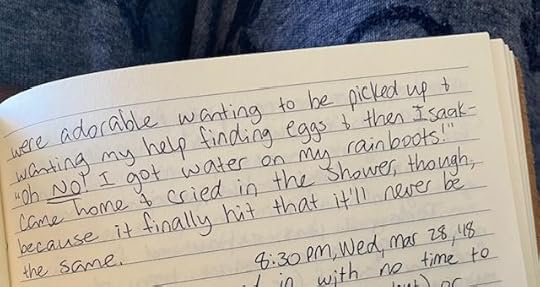 were adorable wanting to be picked up &
wanting my help finding eggs & then Isaak-
"Oh NO! I got water on my rainboots!"
Came home & cried in the shower, though,
because it finally hit that it'll never be
the same.
8:30 pm, Wed, Mar 28, '18
in with no time to
or